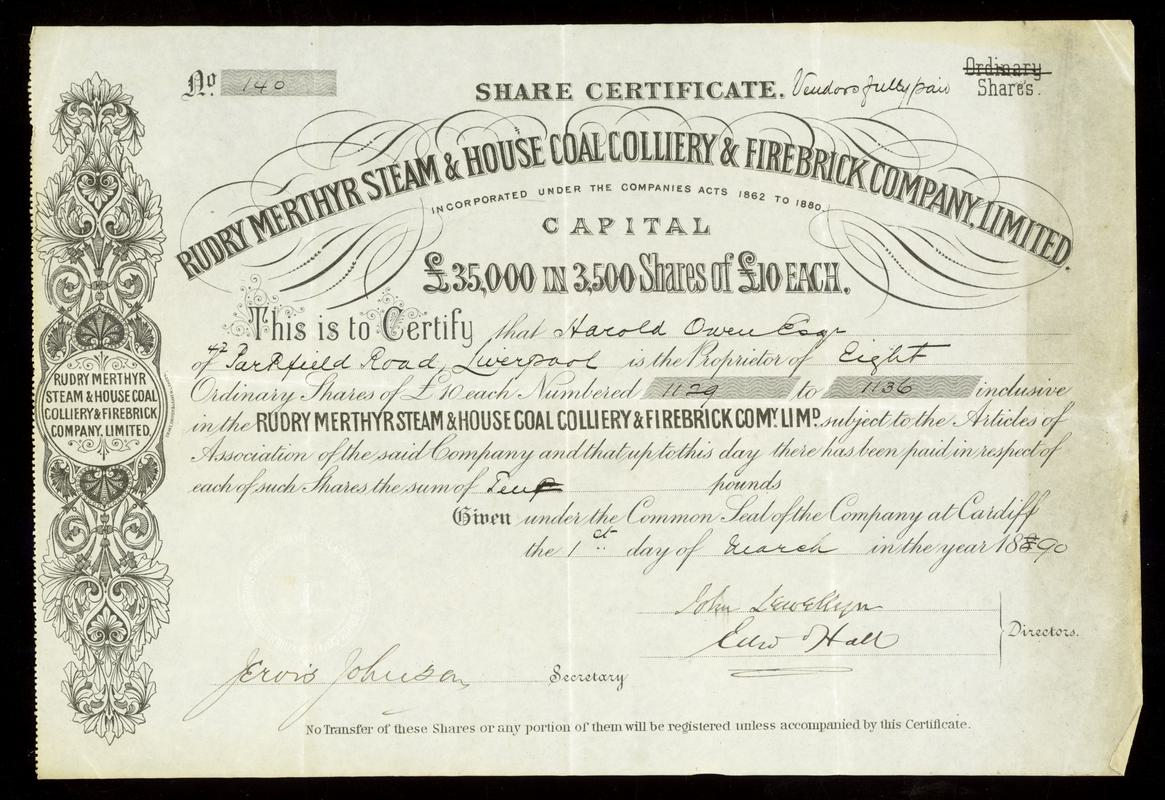 No. 140
SHARE CERTIFICATE. Vendors fully paid
Ordinary
Share's.
RUDRY MERTHYR STEAM & HOUSE COAL COLLIERY & FIREBRICK COMPANY, LIMITED.
INCORPORATED UNDER THE COMPANIES ACTS 1862 TO 1880.
CAPITAL
£35,000 IN 3,500 Shares of £10 EACH.
This is to Certify that Harold Owen Esqr
of 42 Parkfield Road, Liverpool is the Proprietor of Eight
Ordinary Shares of £10 each Numbered 1129 to 1136 inclusive
in the RUDRY MERTHYR STEAM & HOUSE COAL COLLIERY & FIREBRICK COMY. LIMD. subject to the Articles of
Association of the said Company and that up to this day there has been paid in respect of
each of such Shares the sum of Ten pounds
Given under the Common Seal of the Company at Cardiff
the 1st day of March in the year 1890
John Llewellyn
Edwd Hall
Directors.
Jervis Johnson
Secretary
No Transfer of these Shares or any portion of them will be registered unless accompanied by this Certificate.
RUDRY MERTHYR
STEAM & HOUSE COAL
COLLIERY & FIREBRICK
COMPANY, LIMITED.